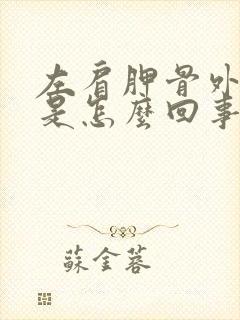 左肩胛骨外
是怎麼回事
蘇金蓉